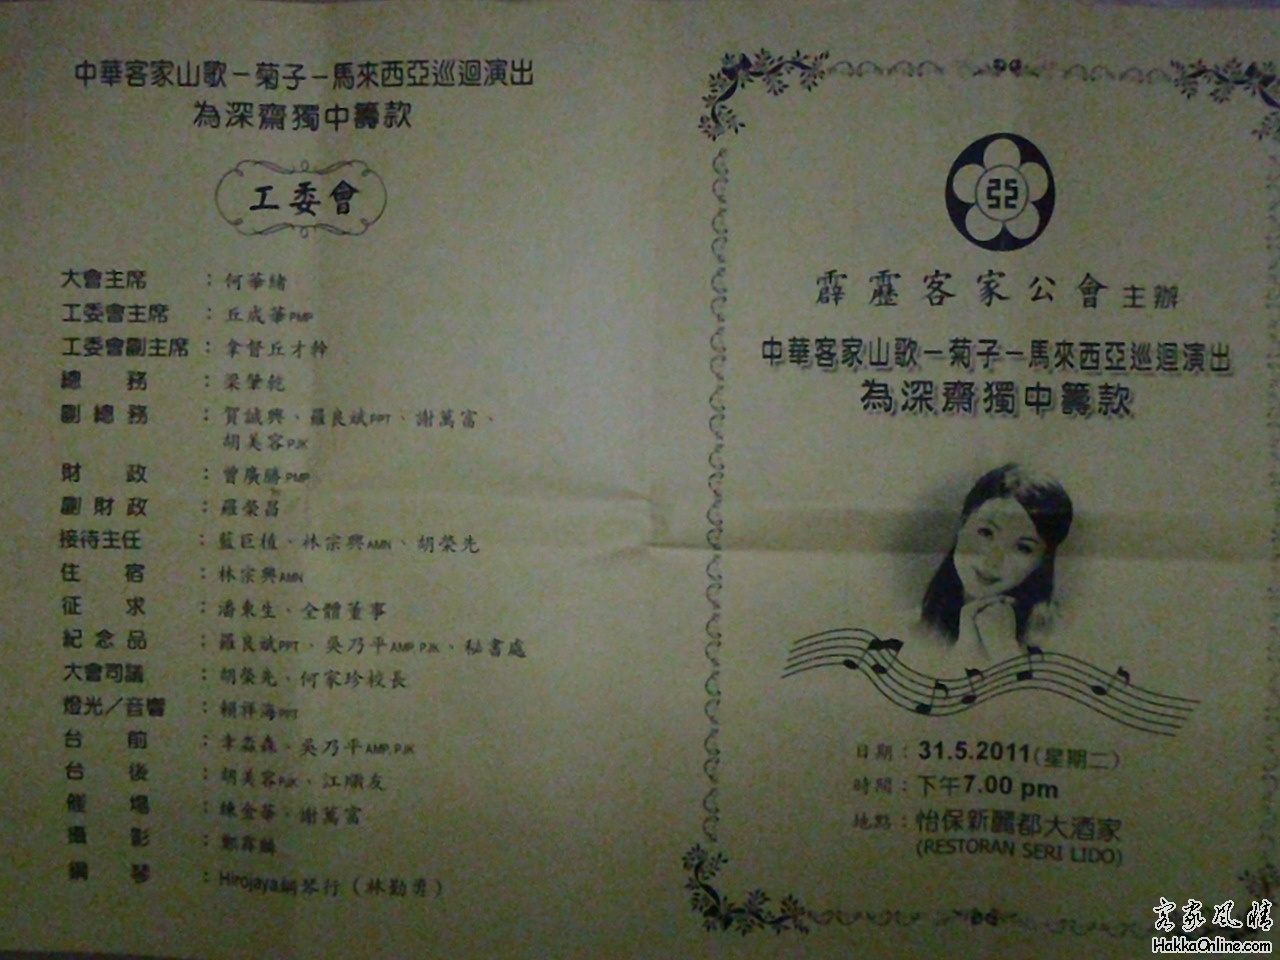 中華客家山歌－菊子－馬來西亞巡迴演出
為深齋獨中籌款
工委會
大會主席 : 何華緒
工委會主席 : 丘成華PMP
工委會副主席 : 拿督丘才幹
總務 : 梁肇乾
副總務 : 賀誠興、羅良斌PPT、謝萬富、
胡美容PJK
財政 : 曾廣勝PMP
副財政 : 羅榮昌
接待主任 : 藍巨植、林宗興AMN、胡榮先
住宿 : 林宗興AMN
征求 : 潘東生、全體董事
紀念品 : 羅良斌PPT、吳乃平AMP,PJK、秘書處
大會司議 : 胡榮先、何家珍校長
燈光／音響 : 賴祥海PPT
台前 : 李淼森、吳乃平AMP,PJK
台後 : 胡美容PJK、江順友
催場 : 練金華、謝萬富
攝影 : 鄭霖麟
鋼琴 : Hirojaya鋼琴行（林勤勇）
霹靂客家公會主辦
中華客家山歌－菊子－馬來西亞巡迴演出
為深齋獨中籌款
日期 : 31.5.2011（星期二）
時間 : 下午7.00 pm
地點 : 怡保新麗都大酒家
(RESTORAN SERI LIDO)
客家風情
HakkaOnline.com